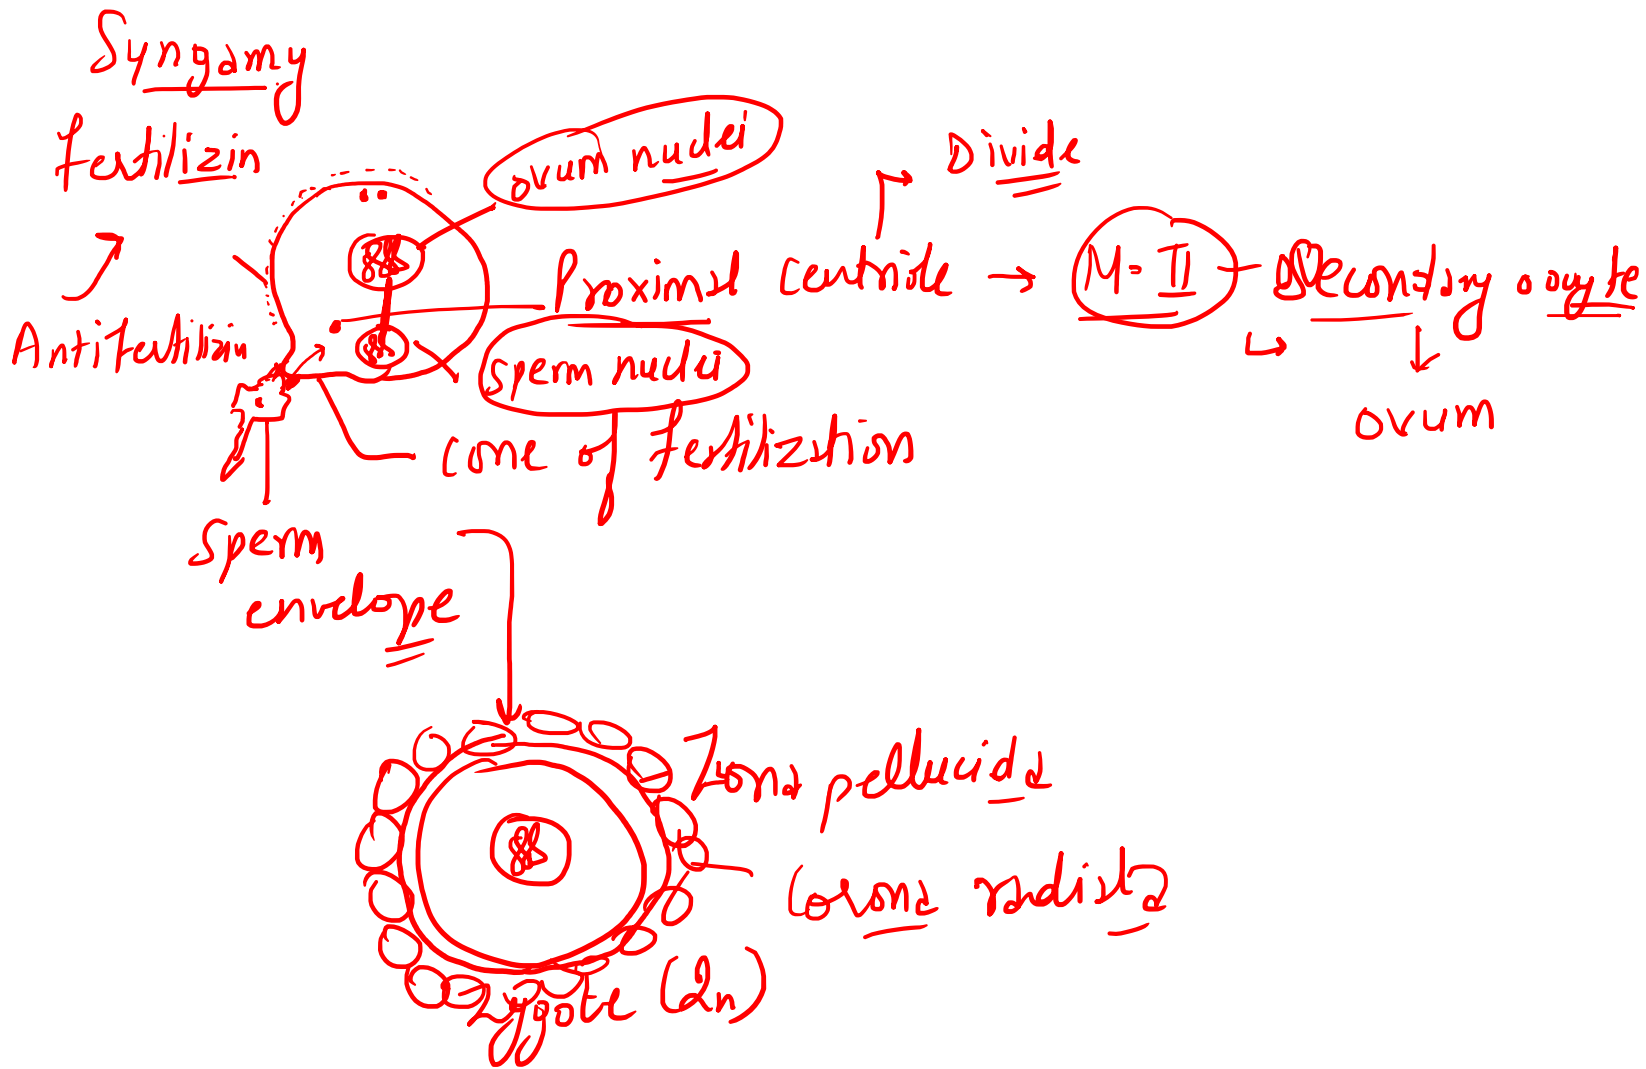 Syngamy
Fertilizin
Antifertilizin
ovum nuclei
Divide
Proximal centriole → M-II - Secondary oocyte
ovum
sperm nuclei
cone of Fertilization
Sperm
envelope
Zona pellucida
Corona radiata
Zygote (2n)